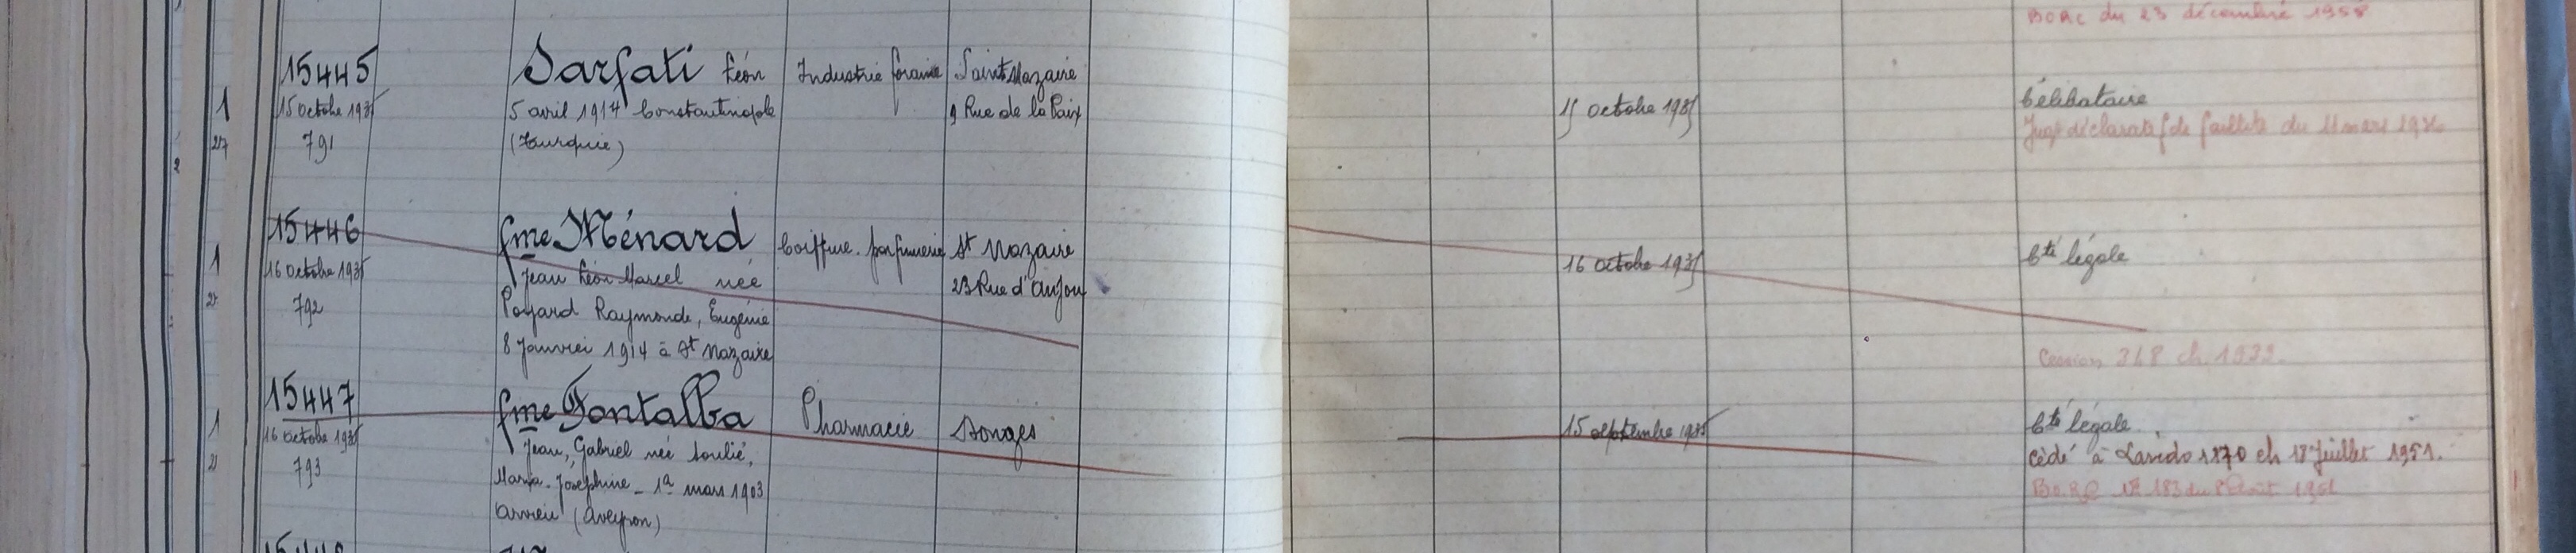 BORC du 23 décembre 1958
15445
1
15 Octobre 1935
217
791
Sarfati Léon
5 avril 1914 Constantinople
(Turquie)
Industrie foraine
Saint Nazaire
9 Rue de la Paix
15 octobre 1935
Célibataire
Jugt déclaratif de faillite du 11 mars
15446
1
16 octobre 1935
792
fme Ménard
Jean Léon Marcel née
Poyard Raymonde, Eugénie
8 Janvier 1914 à St Nazaire
Coiffure-parfumerie
St Nazaire
23 Rue d'Anjou
16 octobre 1935
Cté légale
Cession 348 ch. 1939.
15447
1
16 octobre 1935
793
fme Fontalba
Jean, Gabriel née Soulié,
Maria-Joséphine - 1er mars 1903
Arvieu (Aveyron)
Pharmacie
Donges
15 septembre 1935
Cté légale.
Cédé à 1870 ch 18 Juillet 1951.
BORC N° 183 du 8 Août 1951